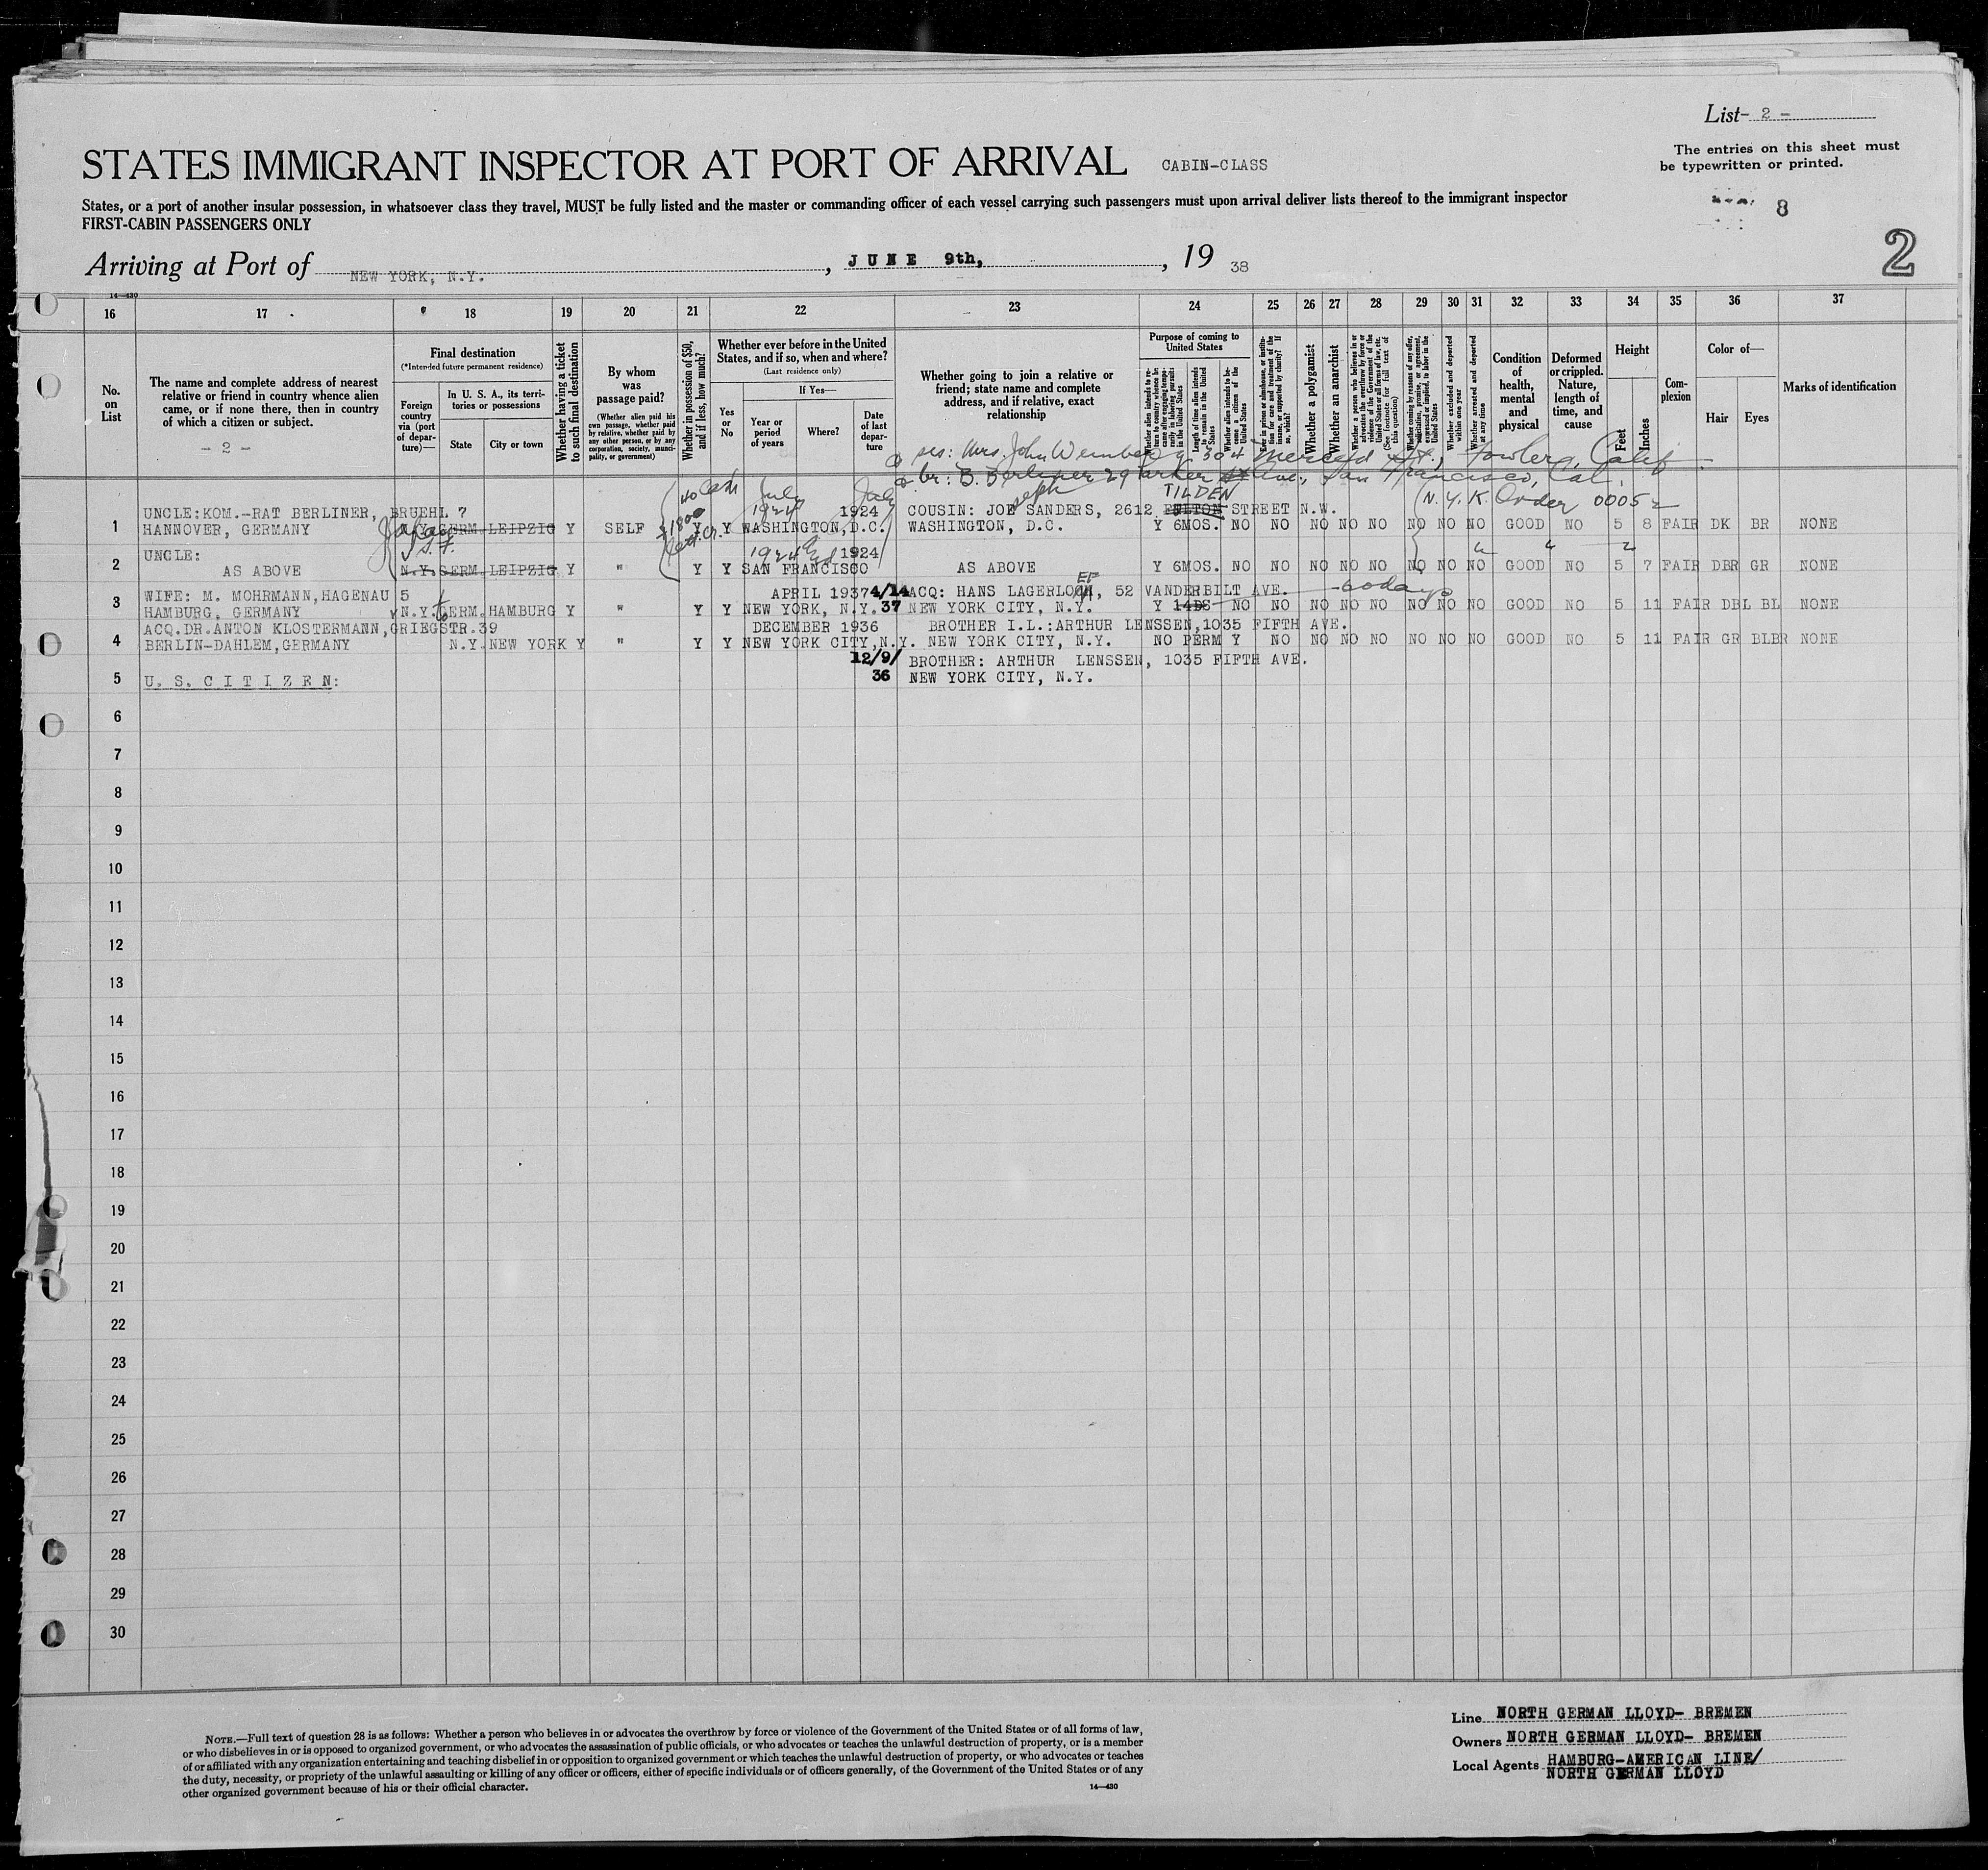 List- 2 -
The entries on this sheet must
be typewritten or printed.
STATES IMMIGRANT INSPECTOR AT PORT OF ARRIVAL CABIN-CLASS
States, or a port of another insular possession, in whatsoever class they travel, MUST be fully listed and the master or commanding officer of each vessel carrying such passengers must upon arrival deliver lists thereof to the immigrant inspector
FIRST-CABIN PASSENGERS ONLY
8
2
Arriving at Port of NEW YORK, N.Y. , JUNE 9th, , 19 38
14—430
16 17 18 19 20 21 22 23 24 25 26 27 28 29 30 31 32 33 34 35 36 37
No. on List
The name and complete address of nearest
relative or friend in country whence alien
came, or if none there, then in country
of which a citizen or subject.
- 2 -
Final destination
(*Intended future permanent residence)
Foreign country via (port of departure)—
In U. S. A., its territories or possessions
State
City or town
Whether having a ticket to such final destination
By whom was passage paid?
(Whether alien paid his own passage, whether paid by relative, whether paid by any other person, or by any corporation, society, municipality, or government)
Whether in possession of $50, and if less, how much?
Whether ever before in the United States, and if so, when and where?
(Last residence only)
Yes or No
If Yes—
Year or period of years
Where?
Date of last departure
Whether going to join a relative or
friend; state name and complete
address, and if relative, exact
relationship
Purpose of coming to United States
Length of time alien intends to remain in the United States
Whether alien intends to become a citizen of the United States
Whether a polygamist
Whether an anarchist
Whether excluded and deported within one year
Whether arrested and deported at any time
Condition of health, mental and physical
Deformed or crippled. Nature, length of time, and cause
Height
Feet
Inches
Complexion
Color of—
Hair
Eyes
Marks of identification
sis: Mrs. John Weinberg, 304 Merced St., Fowler, Calif.
br: B. Berliner 29 Parker Ave., San Francisco, Cal.
N.Y.K Order 00052
40 Cash
July 1924 July
TILDEN
UNCLE:KOM.-RAT BERLINER, BRUEHL 7 1924 COUSIN: JOE SANDERS, 2612 FULTON STREET N.W.
1 HANNOVER, GERMANY N.Y. GERM. LEIPZIG Y SELF Y Y WASHINGTON,D.C. WASHINGTON, D.C. Y 6MOS. NO NO NO NO NO NO NO NO GOOD NO 5 8 FAIR DK BR NONE
Japan
S.F.
UNCLE: 1924 1924
2 AS ABOVE N.Y. GERM. LEIPZIG Y " Y Y SAN FRANCISCO AS ABOVE Y 6MOS. NO NO NO NO NO NO NO NO GOOD NO 5 7 FAIR DBR GR NONE
WIFE: M. MOHRMANN,HAGENAU 5 APRIL 1937 4/14 ACQ: HANS LAGERLOEF, 52 VANDERBILT AVE. 60 days
3 HAMBURG, GERMANY N.Y. GERM. HAMBURG Y " Y Y NEW YORK, N.Y. 37 NEW YORK CITY, N.Y. Y 14DS NO NO NO NO NO NO NO NO GOOD NO 5 11 FAIR DBL BL NONE
ACQ.DR.ANTON KLOSTERMANN,GRIEGSTR.39 DECEMBER 1936 BROTHER I.L.:ARTHUR LENSSEN,1035 FIFTH AVE.
4 BERLIN-DAHLEM,GERMANY N.Y. NEW YORK Y " Y Y NEW YORK CITY,N.Y. NEW YORK CITY, N.Y. NO PERM Y NO NO NO NO NO NO NO GOOD NO 5 11 FAIR GR BLBR NONE
12/9/ BROTHER: ARTHUR LENSSEN, 1035 FIFTH AVE.
5 U. S. C I T I Z E N: 36 NEW YORK CITY, N.Y.
6
7
8
9
10
11
12
13
14
15
16
17
18
19
20
21
22
23
24
25
26
27
28
29
30
NOTE.—Full text of question 28 is as follows: Whether a person who believes in or advocates the overthrow by force or violence of the Government of the United States or of all forms of law,
or who disbelieves in or is opposed to organized government, or who advocates the assassination of public officials, or who advocates or teaches the unlawful destruction of property, or is a member
of or affiliated with any organization entertaining and teaching disbelief in or opposition to organized government or which teaches the unlawful destruction of property, or who advocates or teaches
the duty, necessity, or propriety of the unlawful assaulting or killing of any officer or officers, either of specific individuals or of officers generally, of the Government of the United States or of any
other organized government because of his or their official character.
14—430
Line NORTH GERMAN LLOYD- BREMEN
Owners NORTH GERMAN LLOYD- BREMEN
Local Agents HAMBURG-AMERICAN LINE/
NORTH GERMAN LLOYD